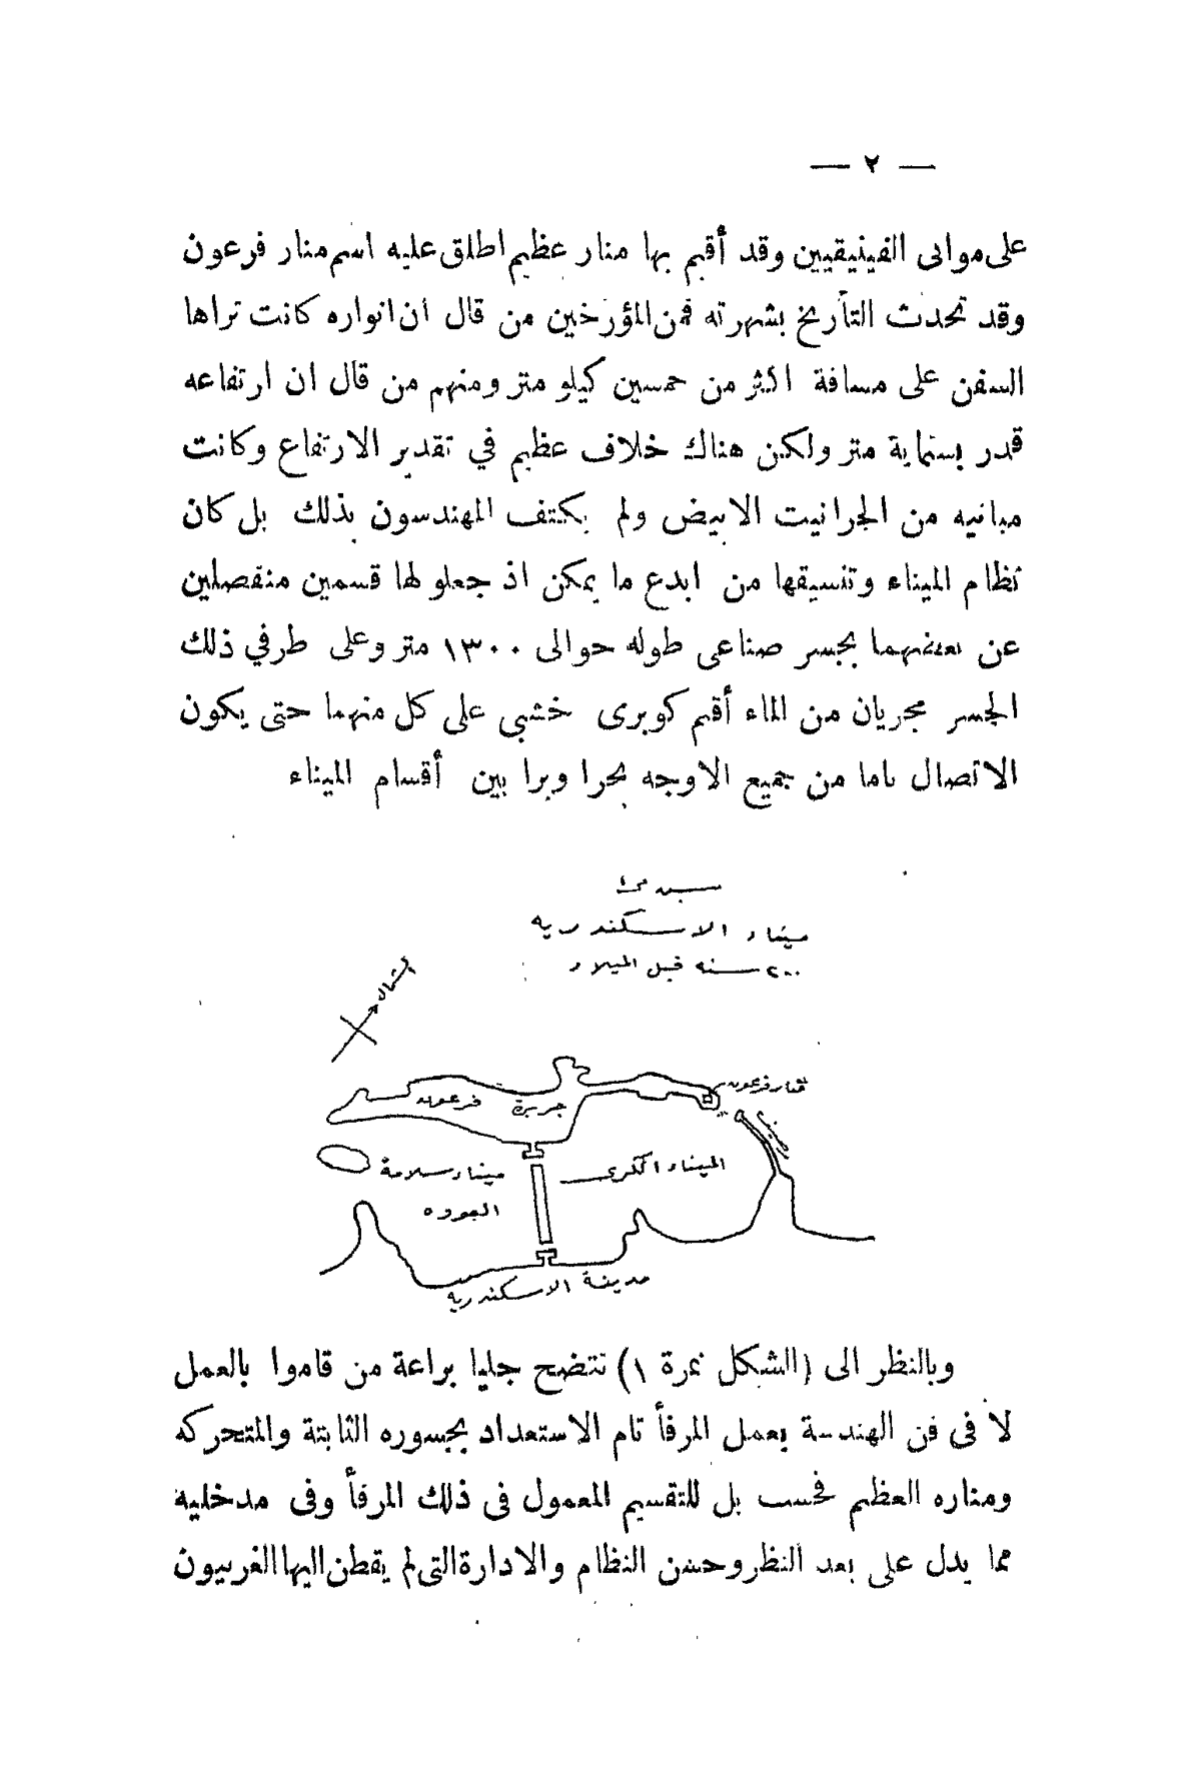 — ٢ —
على موانى الفينيقيين وقد أقيم بها منار عظيم اطلق عليه اسم منار فرعون
وقد تحدث التأريخ بشهرته فمن المؤرخين من قال ان انواره كانت تراها
السفن على مسافة اكثر من خمسين كيلو متر ومنهم من قال ان ارتفاعه
قدر بستماية متر ولكن هناك خلاف عظيم في تقدير الارتفاع وكانت
مبانيه من الجرانيت الابيض ولم يكتف المهندسون بذلك بل كان
نظام الميناء وتنسيقها من ابدع ما يمكن اذ جعلو لها قسمين منفصلين
عن بعضهما بجسر صناعى طوله حوالى ١٣٠٠ متر وعلى طرفي ذلك
الجسر مجريان من الماء أقيم كوبرى خشبى على كل منهما حتى يكون
الاتصال تاما من جميع الاوجه بحرا وبرا بين أقسام الميناء
ميناء الاسكندريه
٢٠٠ سنه قبل الميلاد
الشمال
منار فرعون
جزيرة فرعون
الميناء الكبرى
ميناء سلامة
العوده
مدينة الاسكندريه
وبالنظر الى (الشكل نمرة ١) تتضح جليا براعة من قاموا بالعمل
لا فى فن الهندسة بعمل المرفأ تام الاستعداد بجسوره الثابتة والمتحركه
ومناره العظيم فحسب بل للتقسيم المعمول فى ذلك المرفأ وفى مدخليه
مما يدل على بعد النظر وحسن النظام والادارة التى لم يفطن اليها الغربيون